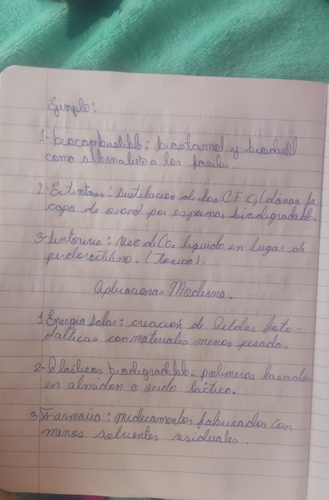 Ejemplo:
1- biocombustible: bioetanol y biodiesel
como alternativa a los fosile.
2- Extintores: Sustitucion de los C.F.C, (dañan la
capa de ozono) por espumas biodegradable.
3- tintoreria: uso de Co2 liquido en lugar de
percloroetileno. (toxico).
Aplicaciones Moderna.
1 Energia solar: creacion de Celdas foto-
voltaicas con materiales menos pesado.
2- Plasticos biodegradable: polimeros basados
en almidon o acido láctico.
3 Farmacia: medicamentos fabricados con
menos solventes residuales.